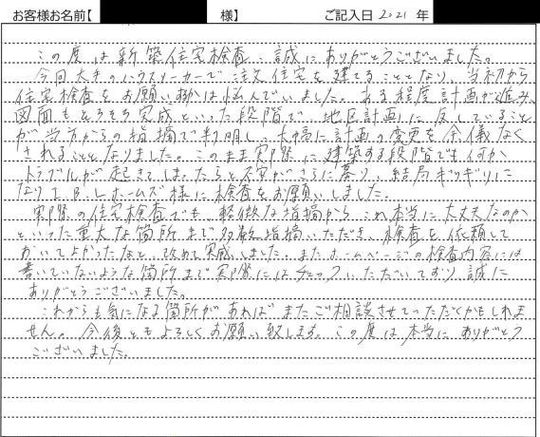 お客様お名前【 様】 ご記入日 2021 年
この度は新築住宅検査、誠にありがとうございました。
今回大手のハウスメーカーで注文住宅を建てることとなり、当初から
住宅検査をお願いするかは悩んでいました。ある程度計画が進み、
図面もそろそろ完成といった段階で、地区計画に反していること
が当方からの指摘で判明し、大幅に計画の変更を余儀なく
されることとなりました。このまま実際に建築する段階でも何か
トラブルが起きてしまったらと不安がさらに募り、結局ギリギリに
なりI.B.Lホームズ様に検査をお願いしました。
実際の住宅検査でも、軽微な指摘から、これ本当に大丈夫なのか
といった重大な箇所まで多数指摘いただき、検査を依頼して
おいてよかったなと、改めて実感しました。またホームページの検査内容には
書いていないような箇所まで実際にはチェックいただいており、誠に
ありがとうございました。
これからも気になる箇所があればまたご相談させていただくかもしれま
せん。今後ともよろしくお願い致します。この度は本当にありがとう
ございました。